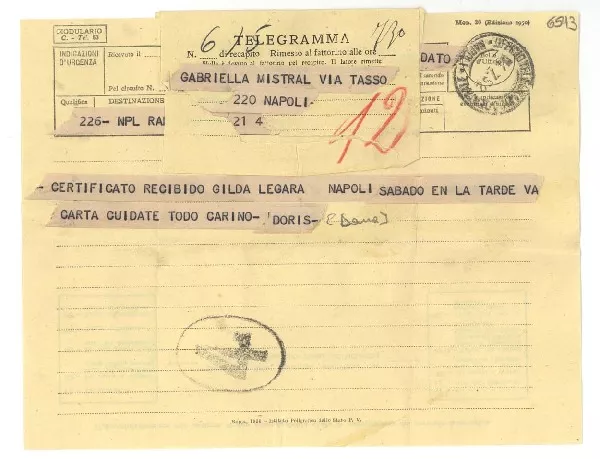 MODULARIO
C. - Tel. 83
6 15 7/30
Mod. 30 (Edizione 1950)
6543
TELEGRAMMA
N. di recapito Rimesso al fattorino alle ore
INDICAZIONI
D'URGENZA
Ricevuto il
DATO
GABRIELLA MISTRAL VIA TASSO
Pel circuito N.
220 NAPOLI-
Qualifica DESTINAZIONE
226- NPL RAM
21 4
12
- CERTIFICATO RECIBIDO GILDA LEGARA NAPOLI SABADO EN LA TARDE VA
CARTA CUIDATE TODO CARINO- 'DORIS-
Roma, 1950 - Istituto Poligrafico dello Stato P. V.